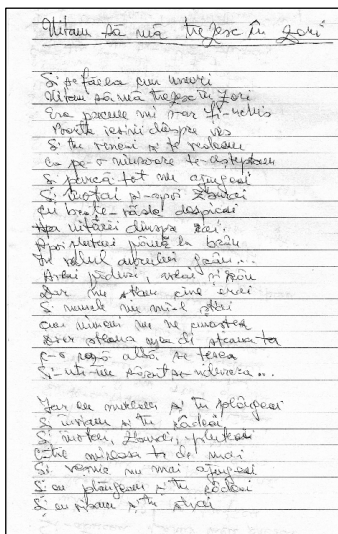 Uitam să mă trezesc în zori
Și se făcea cum uneori
Uitam să mă trezesc în zori
Era parcă mi s-ar fi-nchis
Poarta ieșirii dinspre vis
Și tu veneai și te vedeam
Ca pe-o ninsoare te-așteptam
Și parcă tot nu ajungeai
Și înotai și-apoi zburai
Cu brațe răste despicai
Apa uitării dinspre rai.
Apoi plutai până la brâu
În valul aurului grâu...
Aveai păduri, vrai și râu
Dar nu știam cine erai
Și numele nu mi-l știai
Căci nimeni nu ne cunoștea
Doar steaua mea și steaua ta
C-o rază albă se țesea
Și-ntr-un sărut se-nlănțuia...
Iar eu murdeai și tu plângeai
Și eram și tu cădeai
Și înotai, zburai, pluteai
Către mireasa ta de mai
Și veșnic nu mai ajungeai
Și eu plângeam și tu cădeai
Și eu și tu